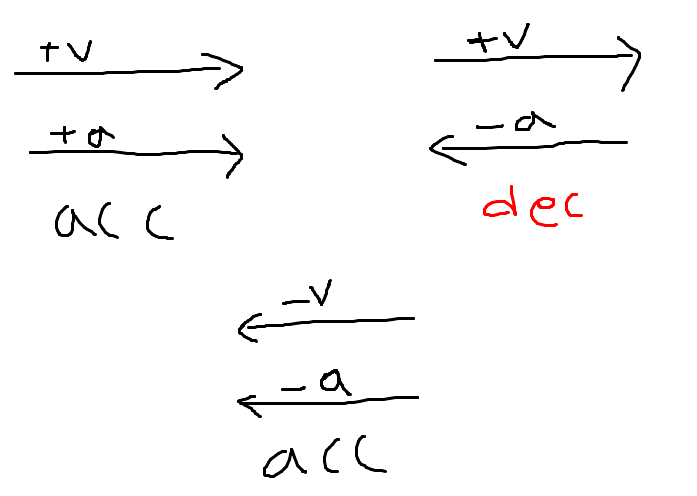 +v
+a
acc
+v
-a
dec
-v
-a
acc